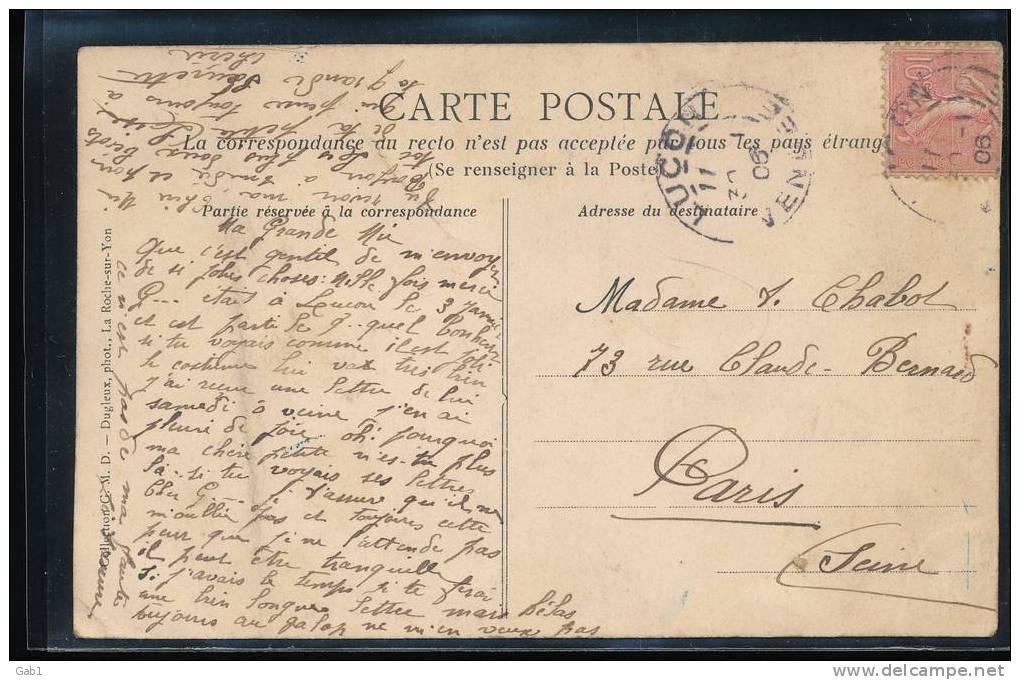 CARTE POSTALE
La correspondance du recto n'est pas acceptée par tous les pays étrang
(Se renseigner à la Poste)
Partie réservée à la correspondance
Adresse du destinataire
Ma Grande Mie
Que c'est gentil de m'envoyer
de si jolies choses: mille fois merci
G... était à Luçon le 3 Janvier
et est parti le 9.. quel bonheur
si tu voyais comme il est joli
le costume lui va très bien
J'ai reçu une lettre de lui
samedi à j'en ai
pleuré de joie oh! pourquoi
ma chère petite n'es-tu plus
là.. si tu voyais ses lettres
Cher G.... je t'assure qu'il ne
m'oublie pas et toujours cette
peur que je ne l'attende pas
il peut être tranquille
Si j'avais le temps je te ferai
une bien longue lettre mais hélas
toujours au galop ne m'en veux pas
ce n'est pas de ma faute
Madame J. Chabot
73 rue Claude-Bernard
Paris
Seine
toujours à
la grande
chérie
Collection C. M. D. — Dugleux, phot., La Roche-sur-Yon
LUÇON
VENDÉE
11
06
10
11
06
Gab1
www.delcampe.net